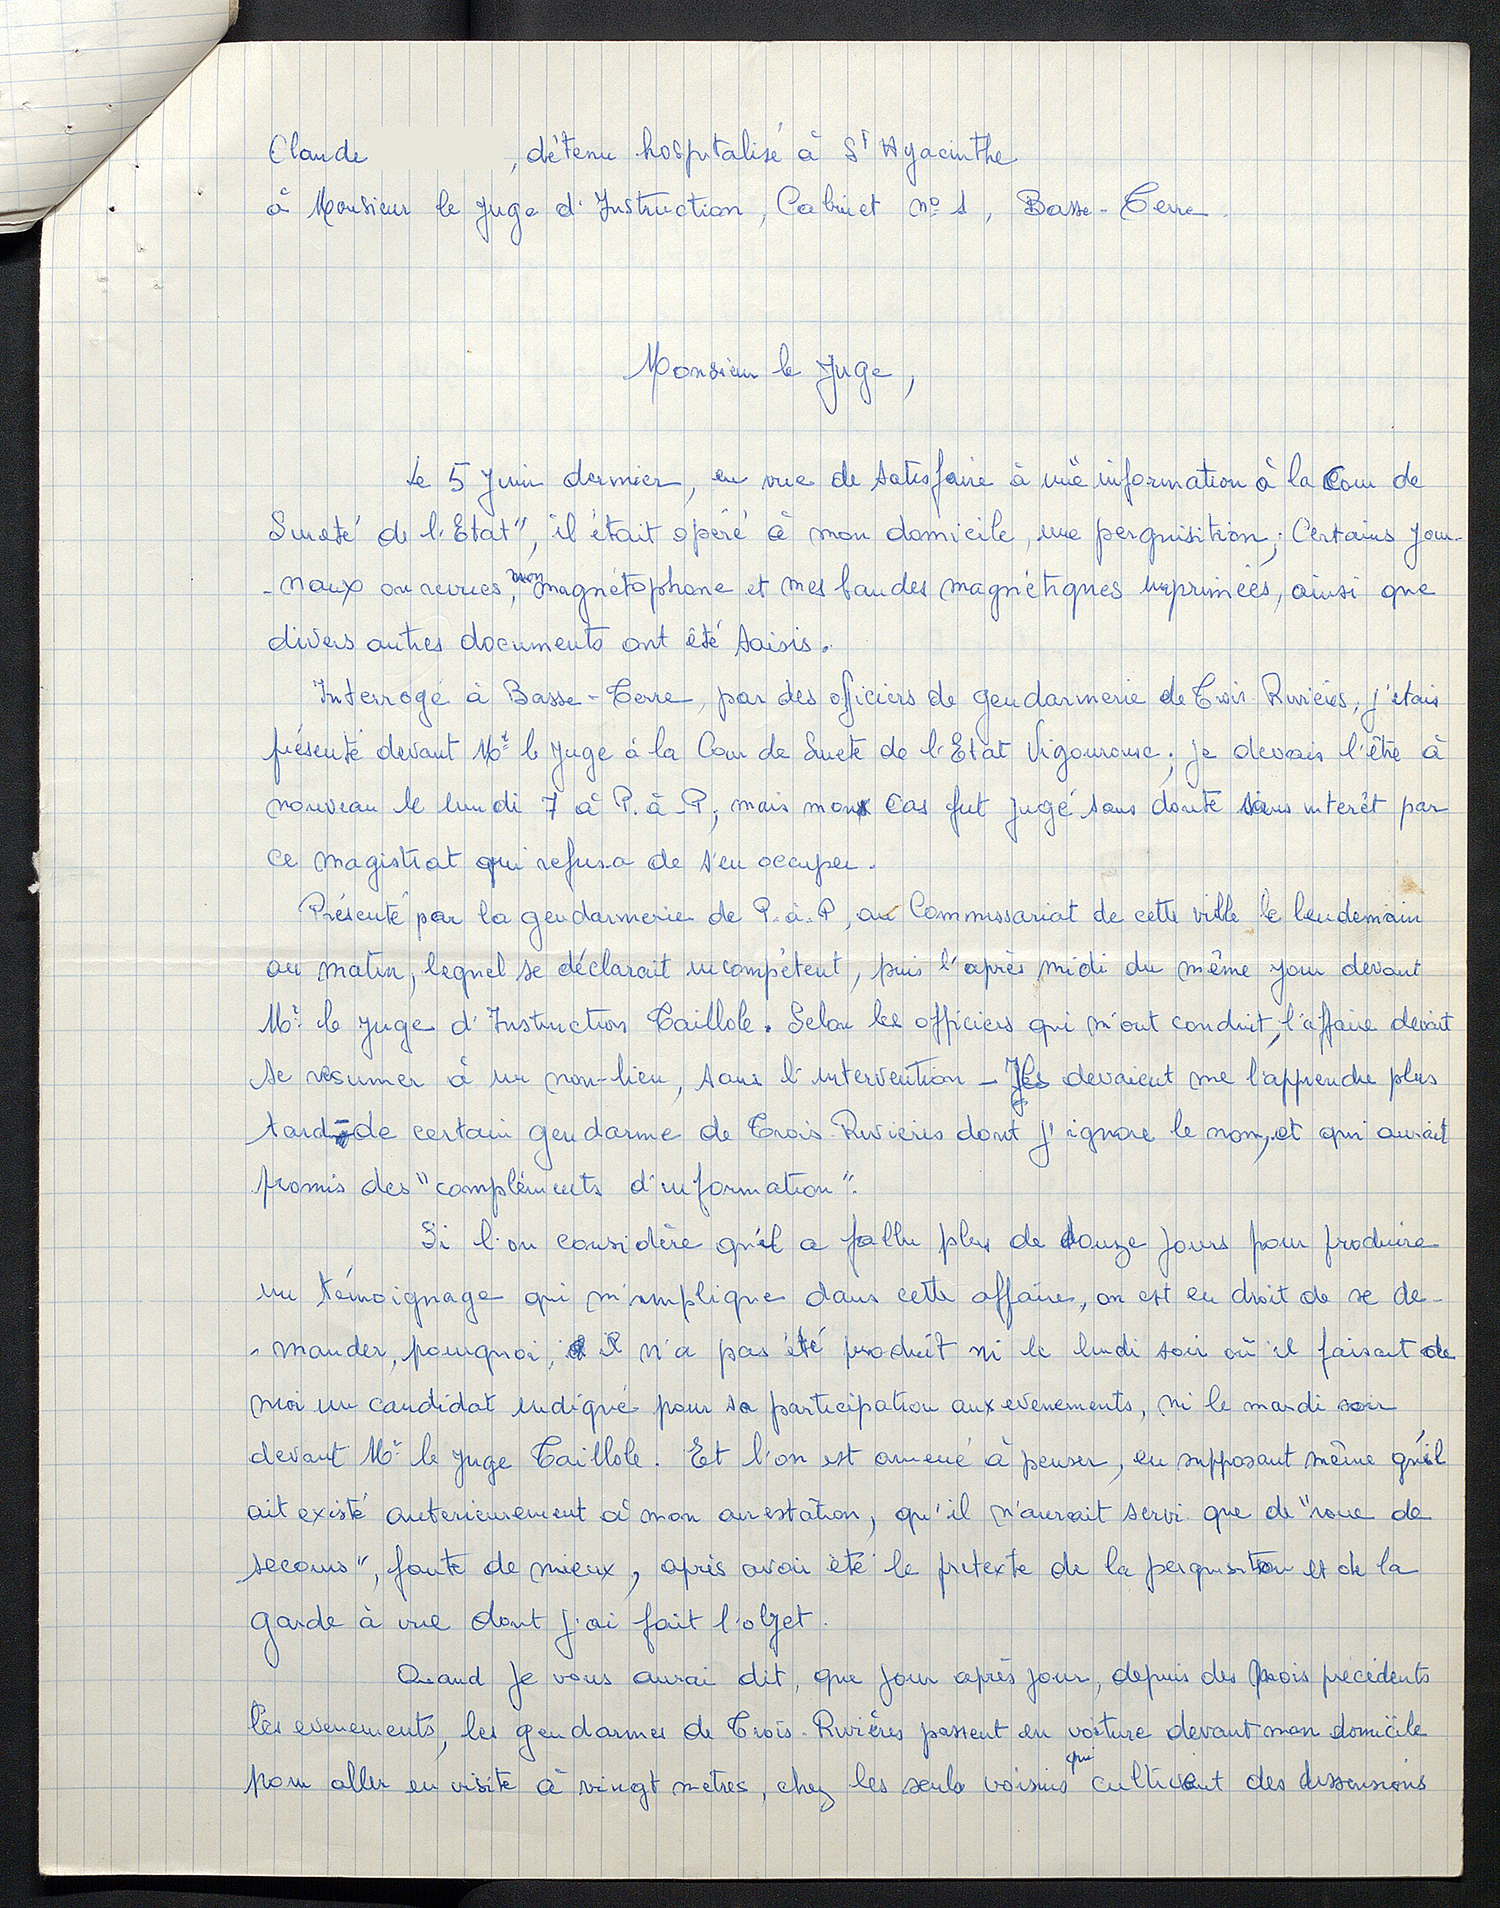 Claude , détenu hospitalisé à St Hyacinthe
à Monsieur le Juge d'Instruction, Cabinet n° 1, Basse-Terre.
Monsieur le Juge,
Le 5 Juin dernier, en vue de satisfaire à une "information à la Cour de
Sureté de l'Etat", il était opéré à mon domicile, une perquisition; Certains jour-
-naux ou revues, mon magnétophone et mes bandes magnétiques imprimées, ainsi que
divers autres documents ont été saisis.
Interrogé à Basse-Terre, par des officiers de gendarmerie de Trois-Rivières, j'étais
présenté devant Mr le Juge à la Cour de Sureté de l'Etat Vigouroux; je devais l'être à
nouveau le lundi 7 à P. à P, mais mon cas fut jugé sans doute sans interêt par
ce magistrat qui refusa de s'en occuper.
Présenté par la gendarmerie de P. à. P, au Commissariat de cette ville le lendemain
au matin, lequel se déclarait incompétent, puis l'après midi du même jour devant
Mr le Juge d'Instruction Taillole. Selon les officiers qui m'ont conduit, l'affaire devait
se résumer à un non-lieu, sans l'intervention - Ils devaient me l'apprendre plus
tard - de certain gendarme de Trois-Rivières dont j'ignore le nom, et qui aurait
promis des "compléments d'information".
Si l'on considère qu'il a fallu plus de douze jours pour produire
un témoignage qui m'implique dans cette affaire, on est en droit de se de-
-mander, pourquoi, il n'a pas été produit ni le lundi soir où il faisait de
moi un candidat indiqué pour sa participation aux evenements, ni le mardi soir
devant Mr le Juge Taillole. Et l'on est amené à penser, en supposant même qu'il
ait existé anterieurement à mon arrestation, qu'il n'aurait servi que de "roue de
secours", faute de mieux, après avoir été le pretexte de la perquisition et de la
garde à vue dont j'ai fait l'objet.
Quand je vous aurai dit, que jour après jour, depuis des mois précédents
les evenements, les gendarmes de Trois-Rivières passent en voiture devant mon domicile
pour aller en visite à vingt mètres, chez les seuls voisins qui cultivent des dissensions